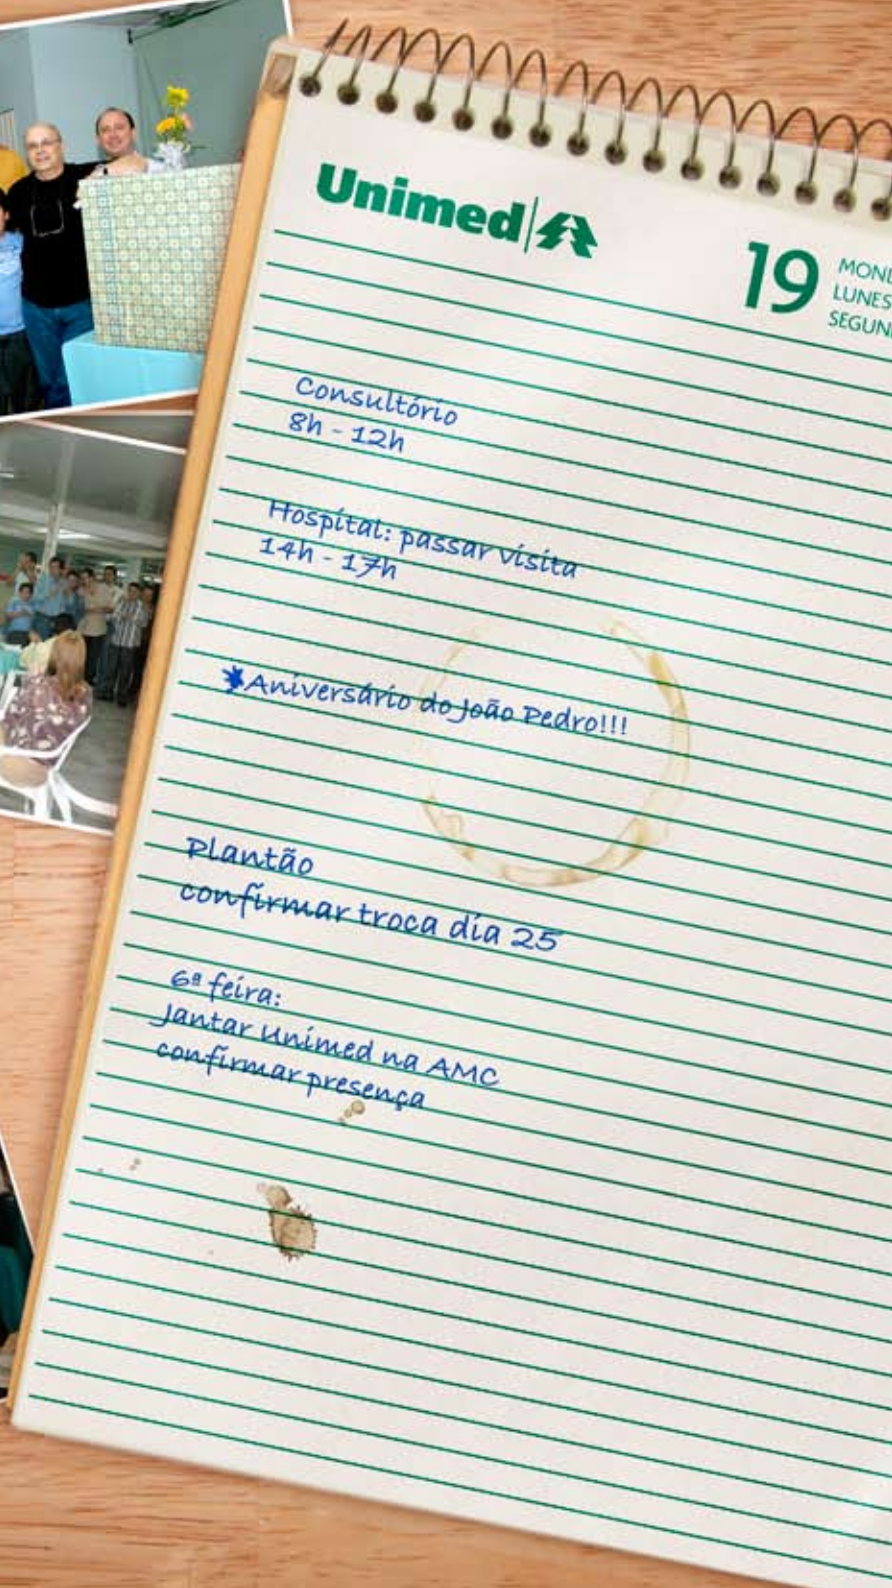 Unimed
19
MOND
LUNES
SEGUN
Consultório
8h - 12h
Hospital: passar visita
14h - 17h
Aniversário do João Pedro!!!
Plantão
confirmar troca dia 25
6ª feira:
Jantar Unimed na AMC
confirmar presença